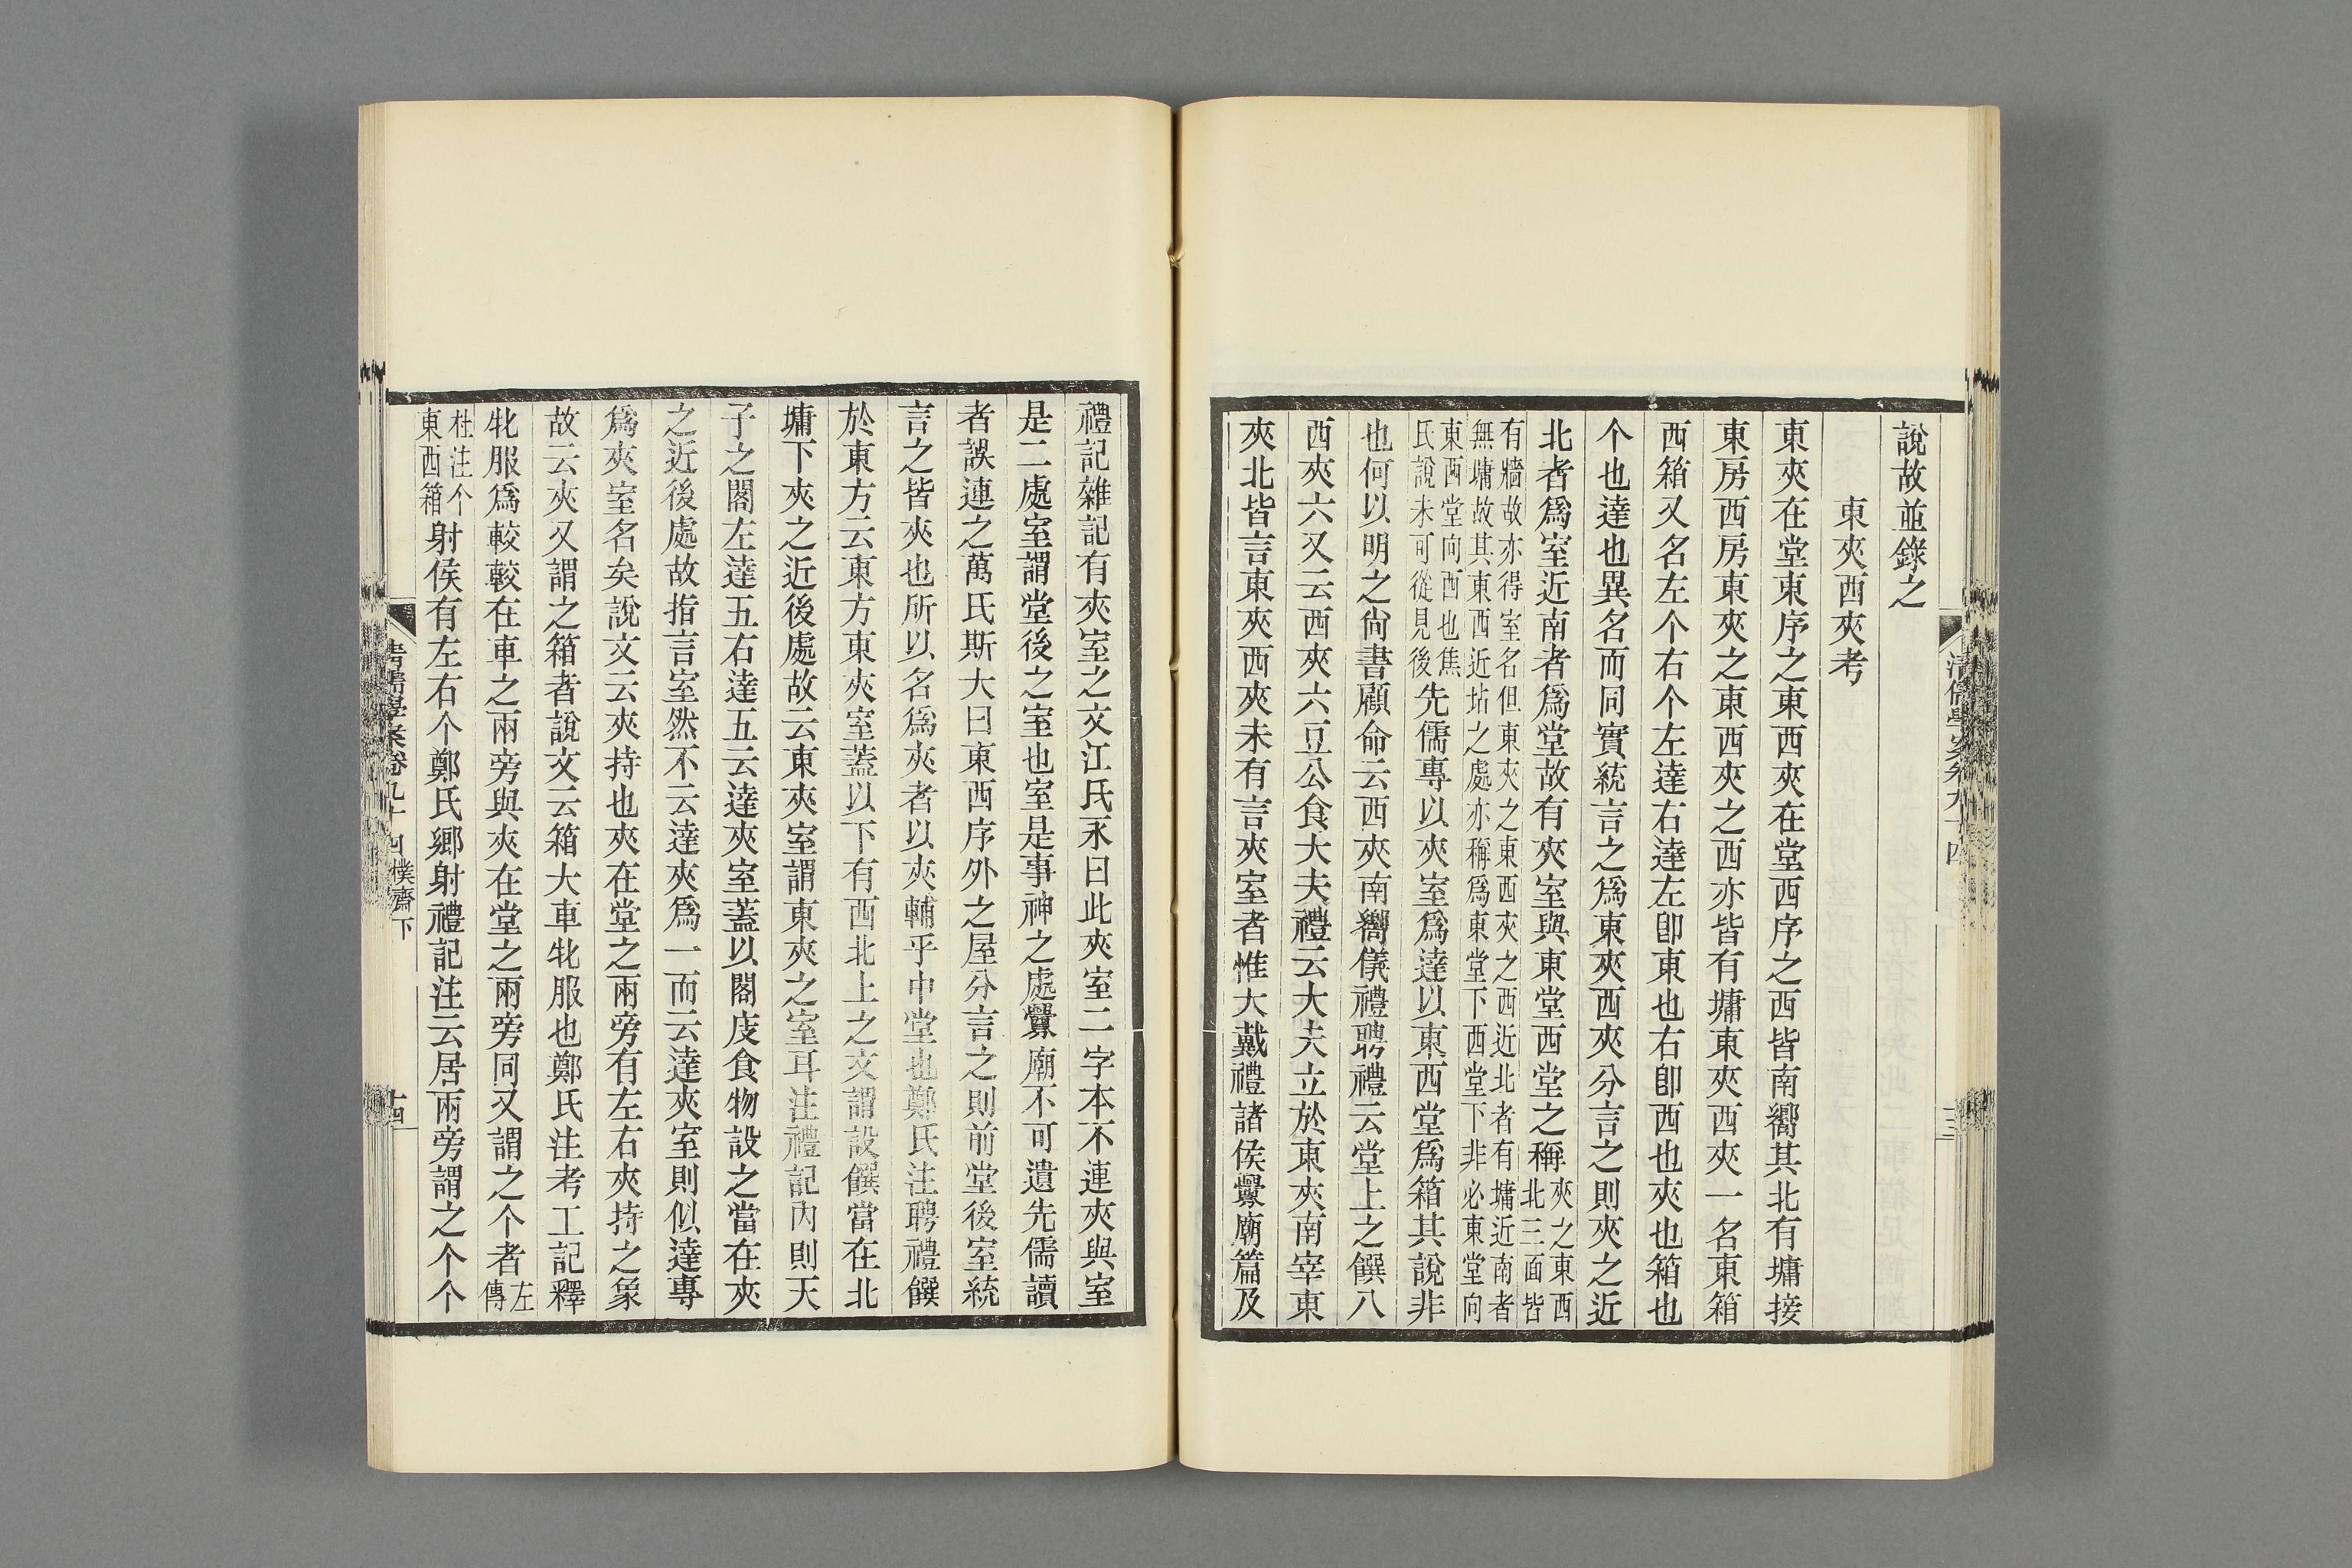 說故並錄之
東夾西夾考
東夾在堂東序之東西夾在堂西序之西皆南嚮其北有墉接
東房西房東夾之東西夾之西亦皆有墉東夾西夾一名東箱
西箱又名左个右个左達右達左卽東也右卽西也夾也箱也
个也達也異名而同實統言之爲東夾西夾分言之則夾之近
北者爲室近南者爲堂故有夾室與東堂西堂之稱夾之東西北三面皆
有牆故亦得室名但東夾之東西夾之西近北者有墉近南者無墉故其東西近坫之處亦稱爲東堂下西堂下非必東堂向
東西堂向西也焦氏說未可從見後先儒專以夾室爲達以東西堂爲箱其說非
也何以明之尙書顧命云西夾南嚮儀禮聘禮云堂上之饌八
西夾六又云西夾六豆公食大夫禮云大夫立於東夾南宰東
夾北皆言東夾西夾未有言夾室者惟大戴禮諸侯釁廟篇及
清儒學案卷九十四
十三
禮記雜記有夾室之文江氏永曰此夾室二字本不連夾與室
是二處室謂堂後之室也室是事神之處釁廟不可遺先儒讀
者誤連之萬氏斯大曰東西序外之屋分言之則前堂後室統
言之皆夾也所以名爲夾者以夾輔乎中堂也鄭氏注聘禮饌
於東方云東方東夾室蓋以下有西北上之文謂設饌當在北
墉下夾之近後處故云東夾室謂東夾之室耳注禮記內則天
子之閣左達五右達五云達夾室蓋以閣庋食物設之當在夾
之近後處故指言室然不云達夾爲一而云達夾室則似達專
爲夾室名矣說文云夾持也夾在堂之兩旁有左右夾持之象
故云夾又謂之箱者說文云箱大車牝服也鄭氏注考工記釋
牝服爲較較在車之兩旁與夾在堂之兩旁同又謂之个者左傳
杜注个東西箱射侯有左右个鄭氏鄉射禮記注云居兩旁謂之个个
清儒學案卷九十四 樸齋下
十四